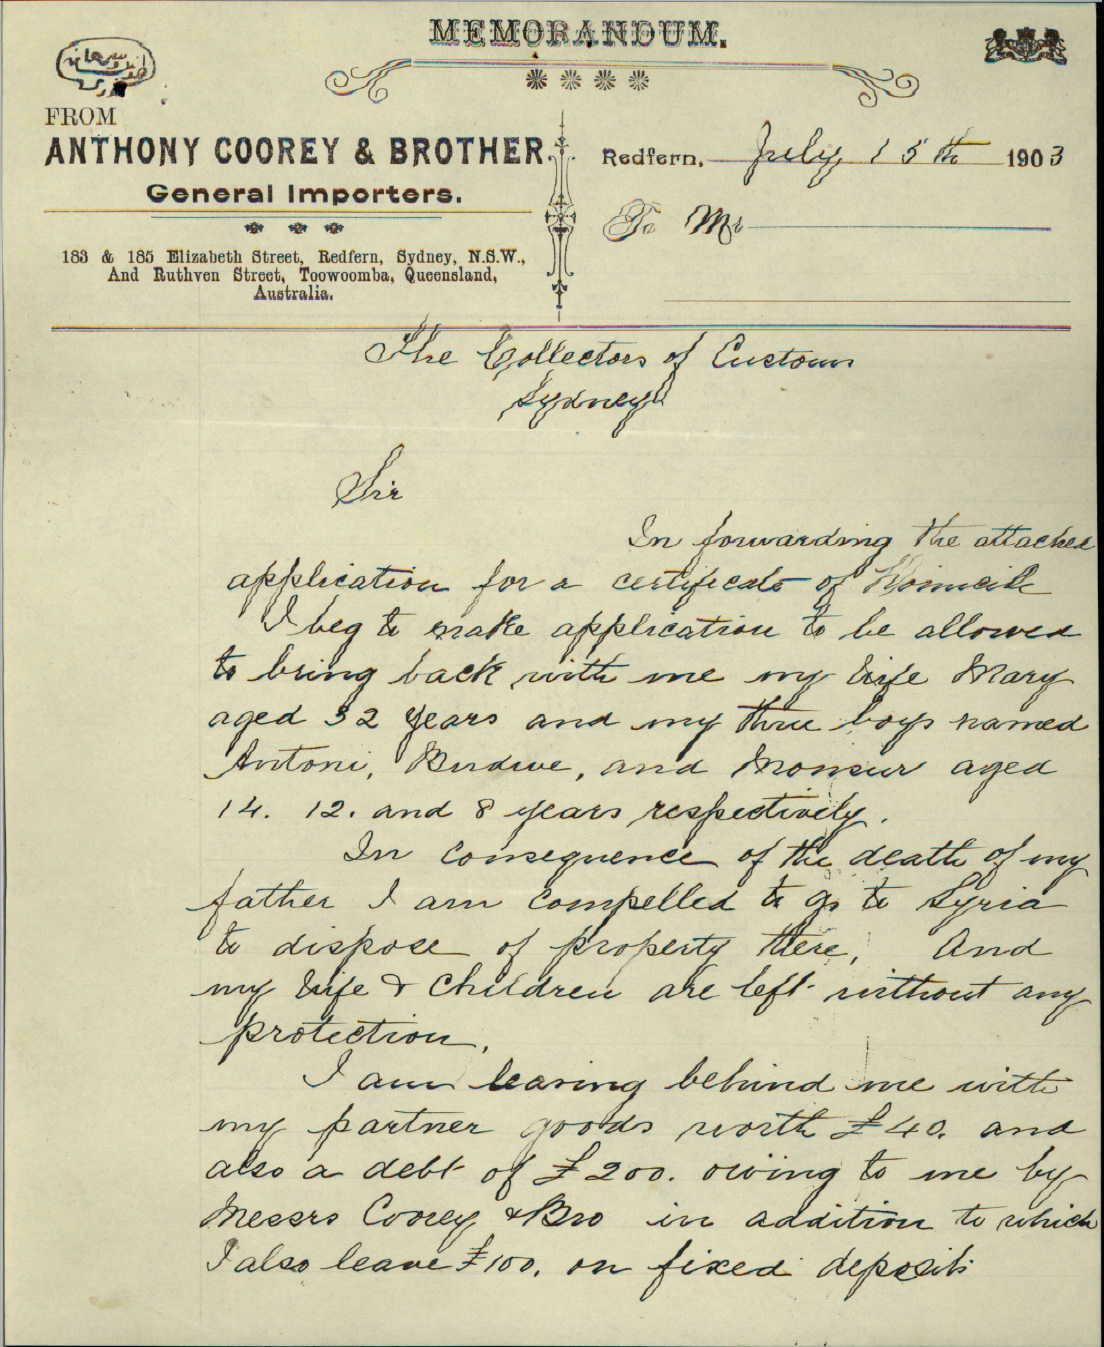 MEMORANDUM.
FROM
ANTHONY COOREY & BROTHER.
General Importers.
183 & 185 Elizabeth Street, Redfern, Sydney, N.S.W.,
And Ruthven Street, Toowoomba, Queensland,
Australia.
Redfern, July 15th 1903
To Mr
The Collectors of Customs
Sydney
Sir
In forwarding the attached
application for a certificate of Domicile
I beg to make application to be allowed
to bring back with me my wife Mary
aged 32 years and my three boys named
Antoni, and Monsur aged
14. 12. and 8 years respectively.
In consequence of the death of my
father I am compelled to go to Syria
to dispose of property there, And
my wife & children are left without any
protection.
I am leaving behind me with
my partner goods worth £40. and
also a debt of £200. owing to me by
Messrs Coorey & Bro in addition to which
I also leave £100. on fixed deposit